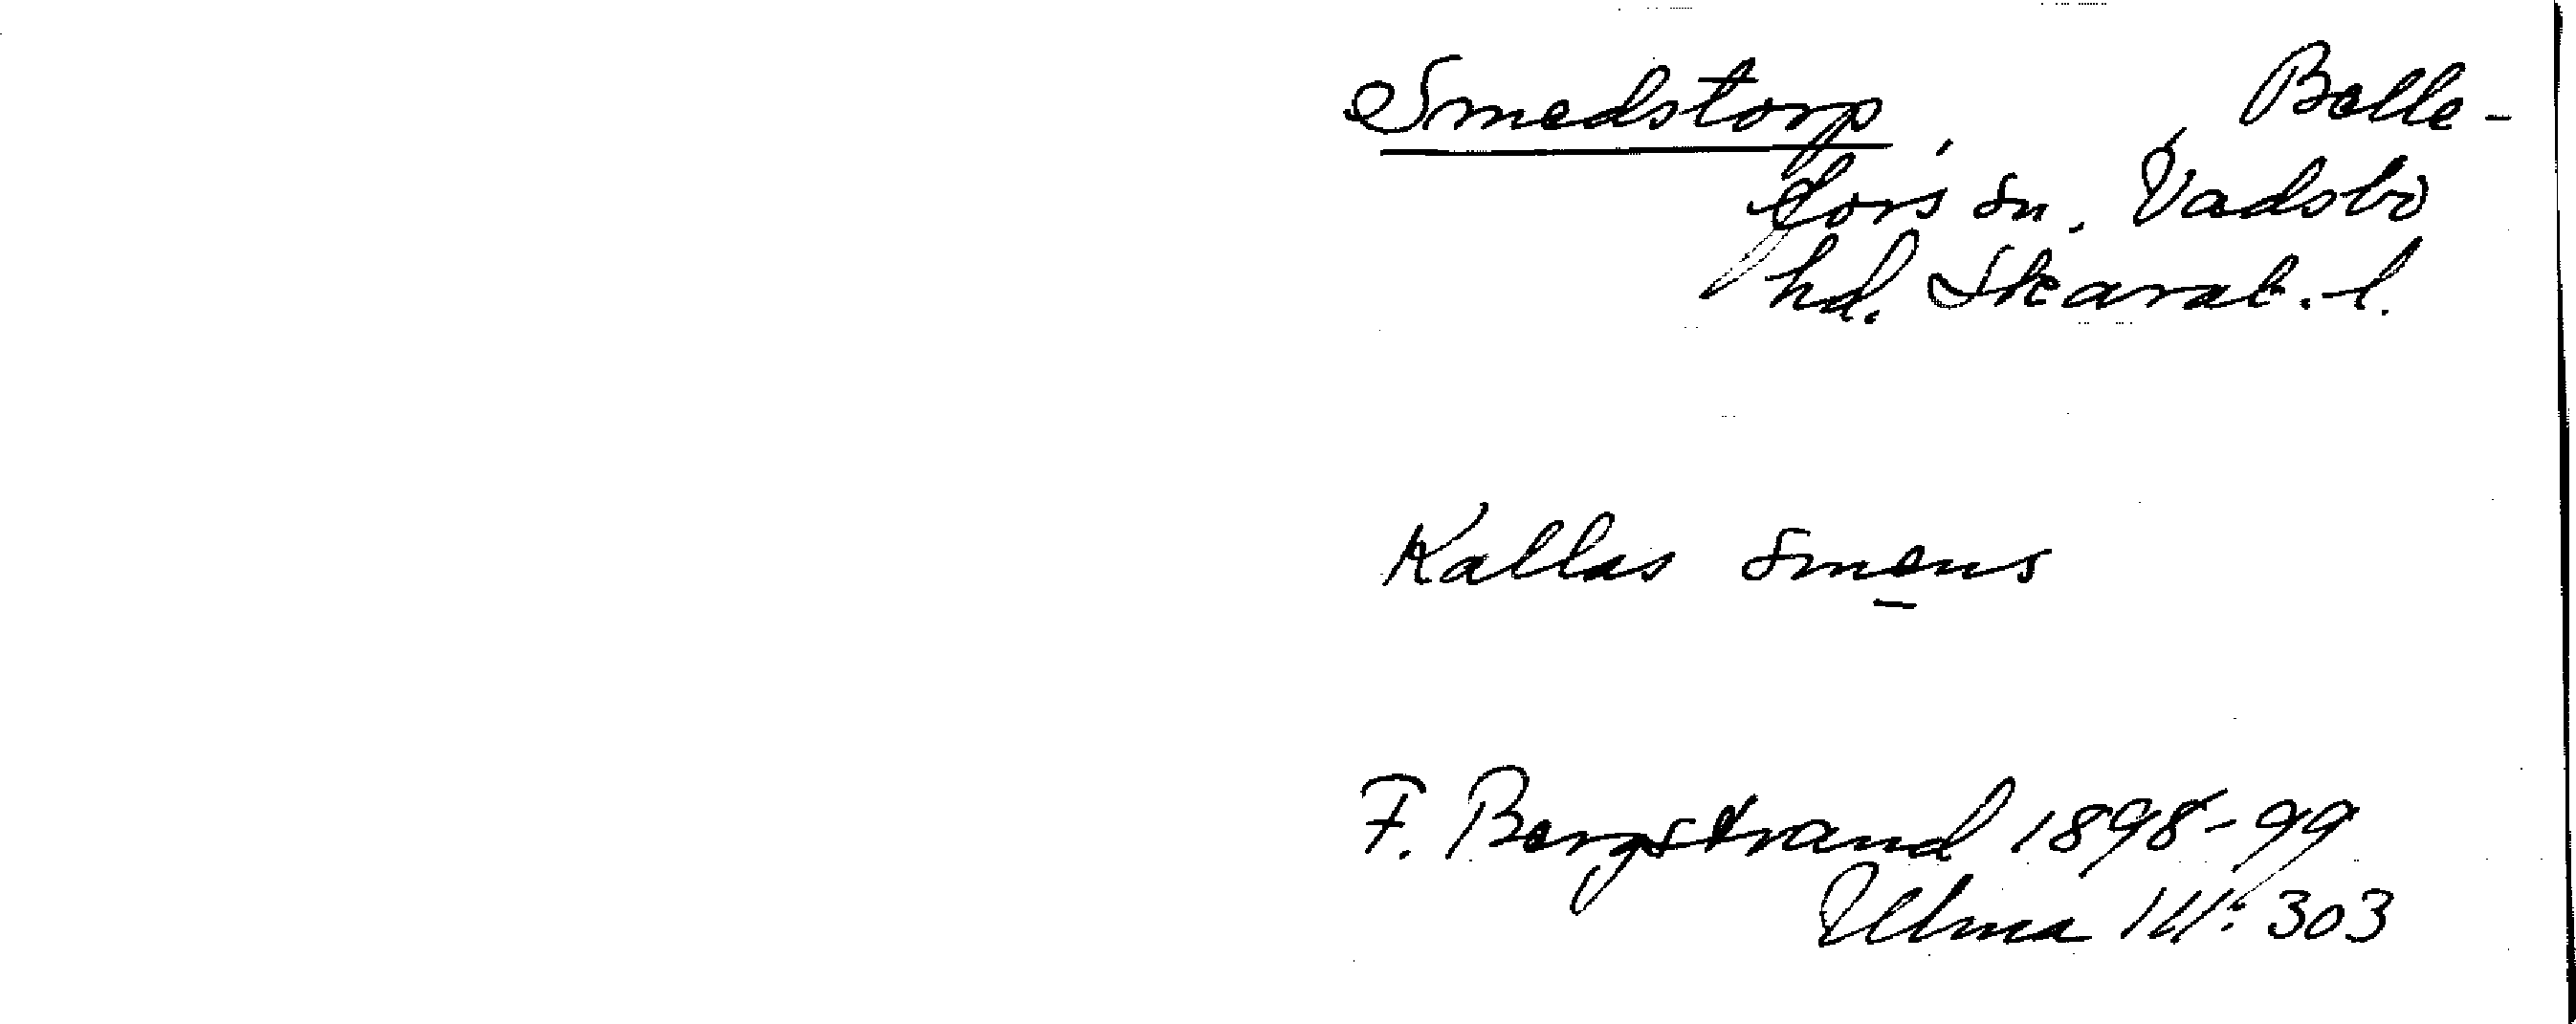 Smedstorp, Belle-
fors sn. Vadsbo
hd. Skarab. l.
Kallas smens
F. Bergstrand 1898-99
Ulma 111:303